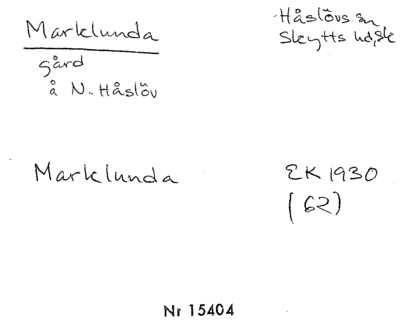 Marklunda
Håslövs sn,
Skytts hd, Sk
gård
å N. Håslöv
Marklunda
EK 1930
(62)
Nr 15404